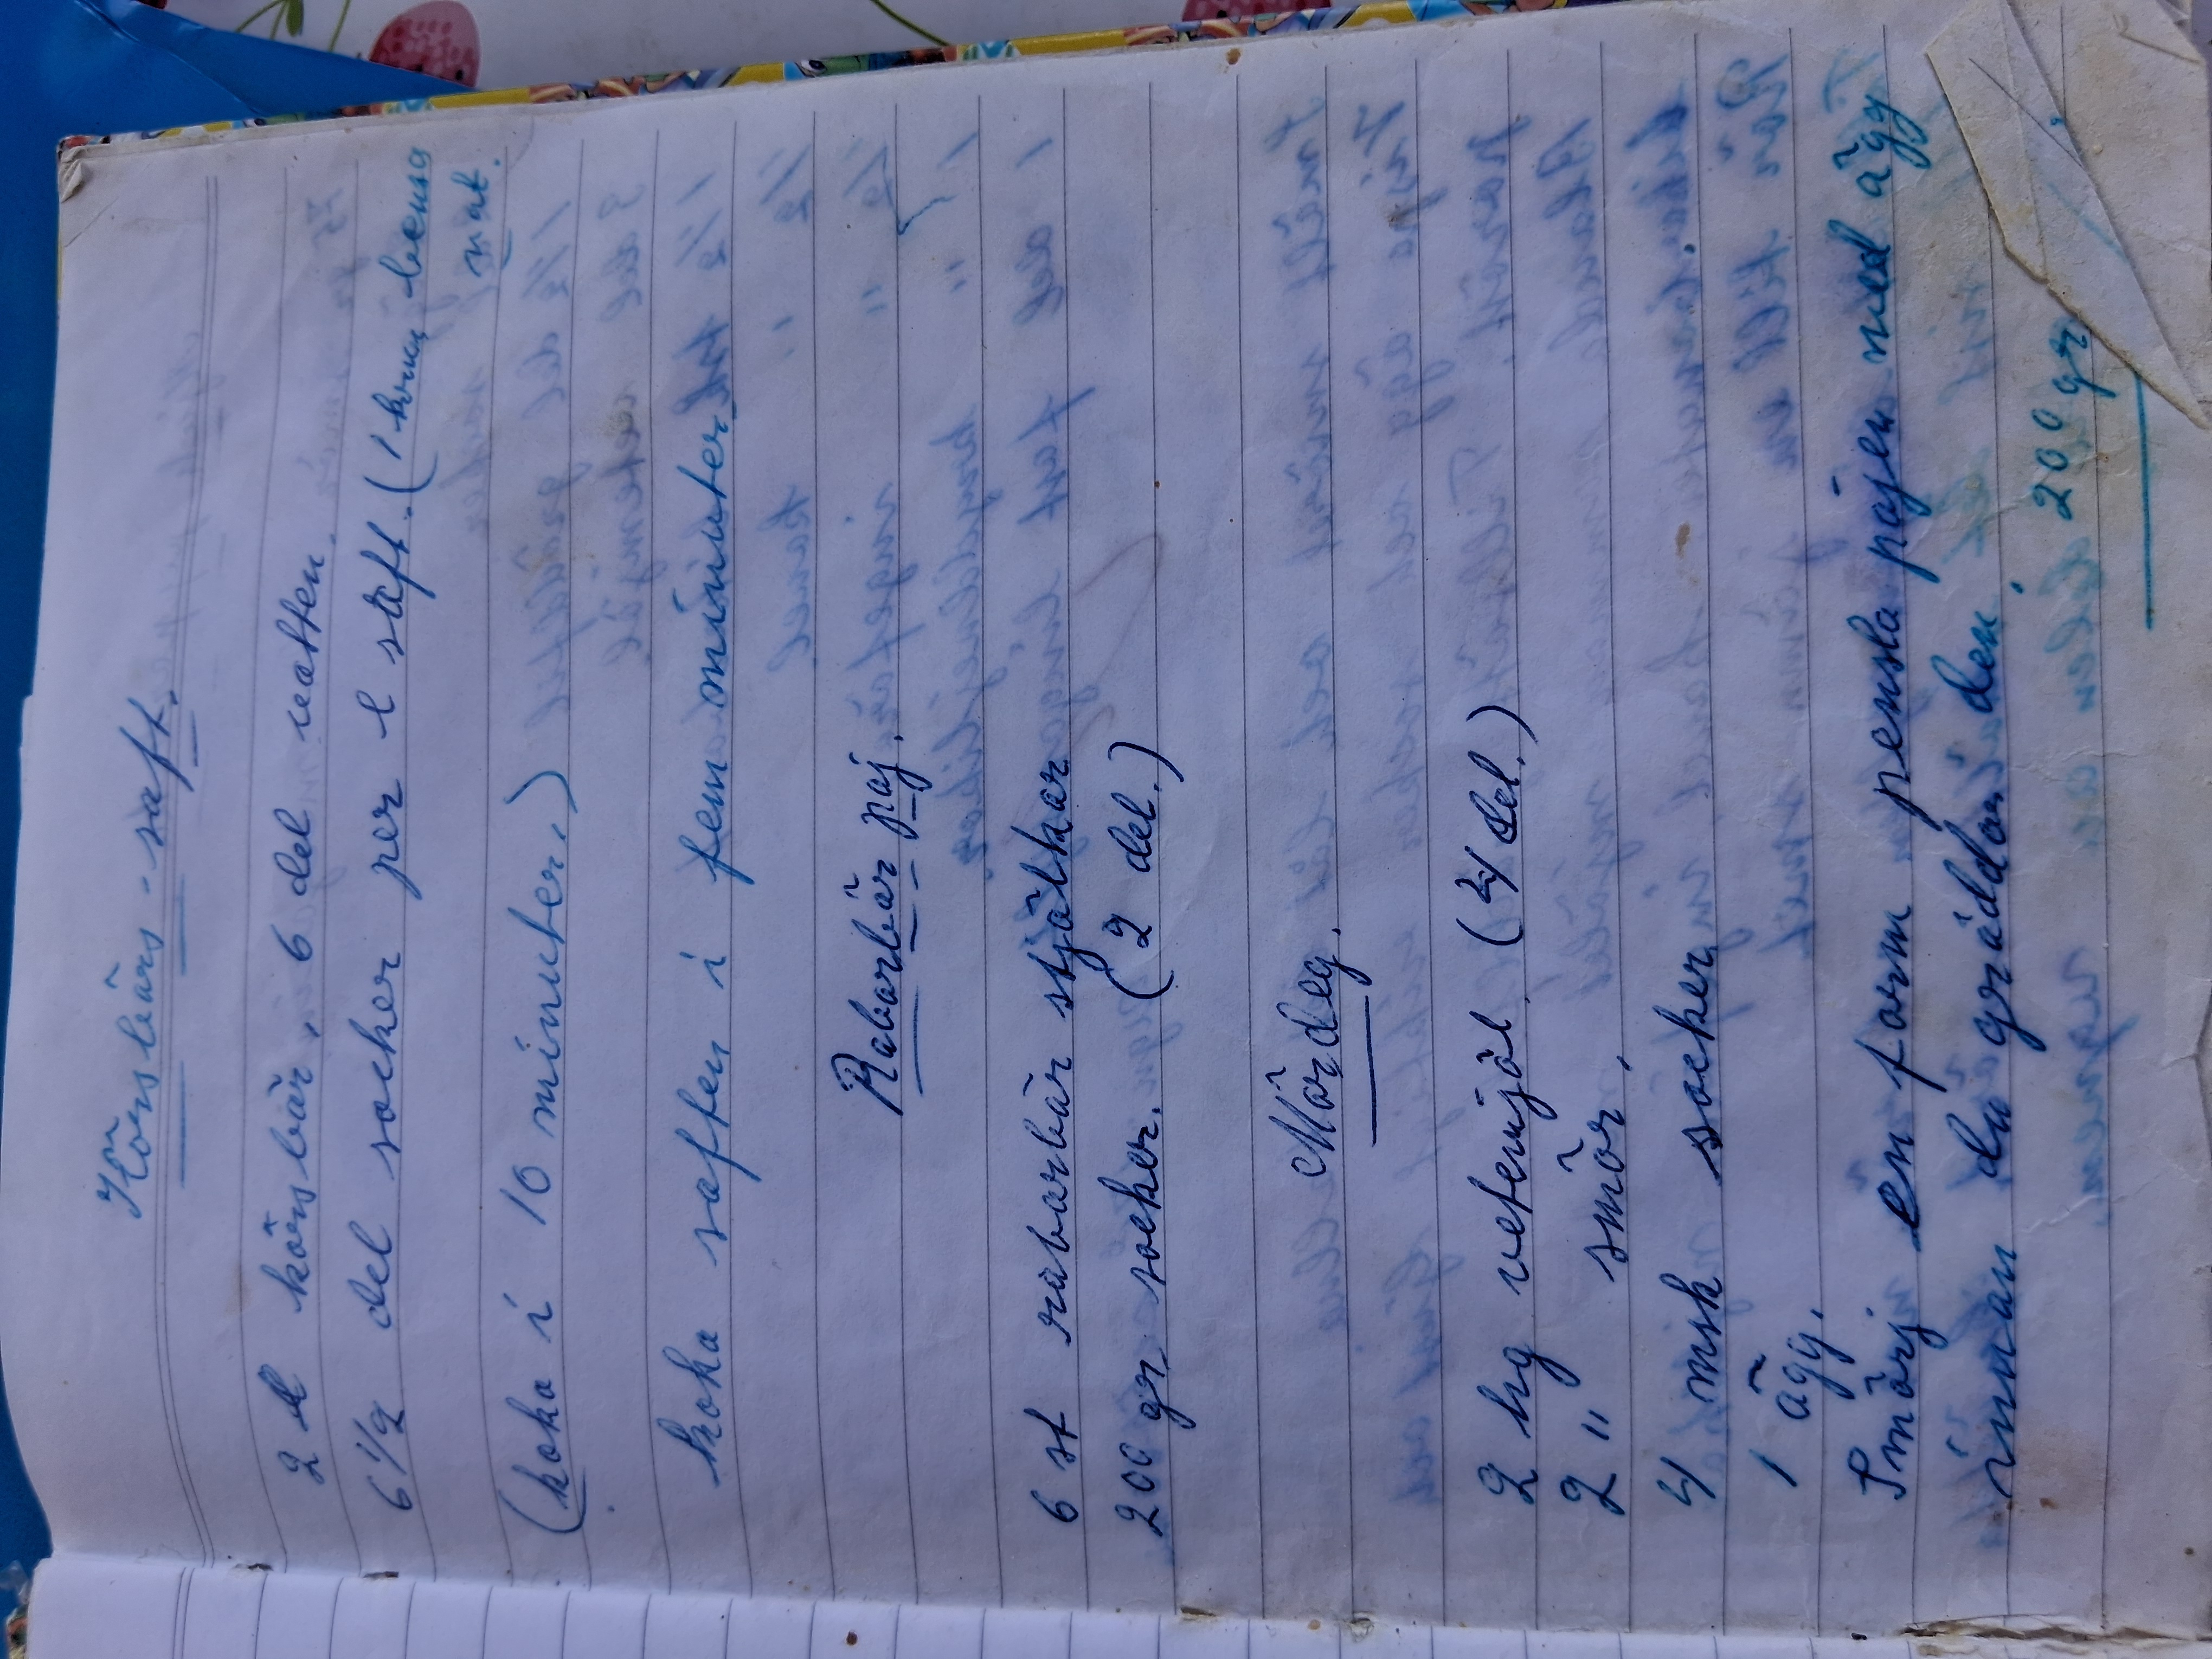 Körsbärs-saft.
2 l körsbär, 6 del vatten.
6 1/2 del socker per l saft. (1 krm bensa
nat.
(koka i 10 minuter.)
koka saften i fem minuter
Rabarbär paj.
6 st rabarbär stjälkar
200 gr socker. (2 del.)
Mördeg.
2 hg vetemjöl (4 del.)
2 " smör.
4 msk socker
1 ägg.
Smörj en form pensla pajen med ägg
innan du gräddar den. 200 gr